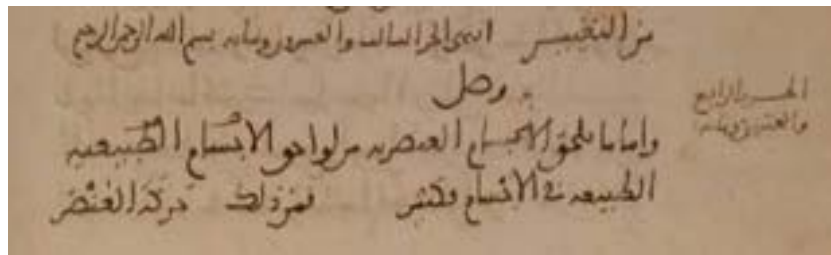 من التغيير انتهى الجز الثالث والعشرون ومايه بسم الله الرحمن الرحيم
وصل
الجزو الرابع
والعشرون ومايه
واما ما يلحق الاجسام العنصريه من لواحق الاجسام الطبيعيه
الطبيعه في الاجسام فكثير فمن ذلك حركة العنصر